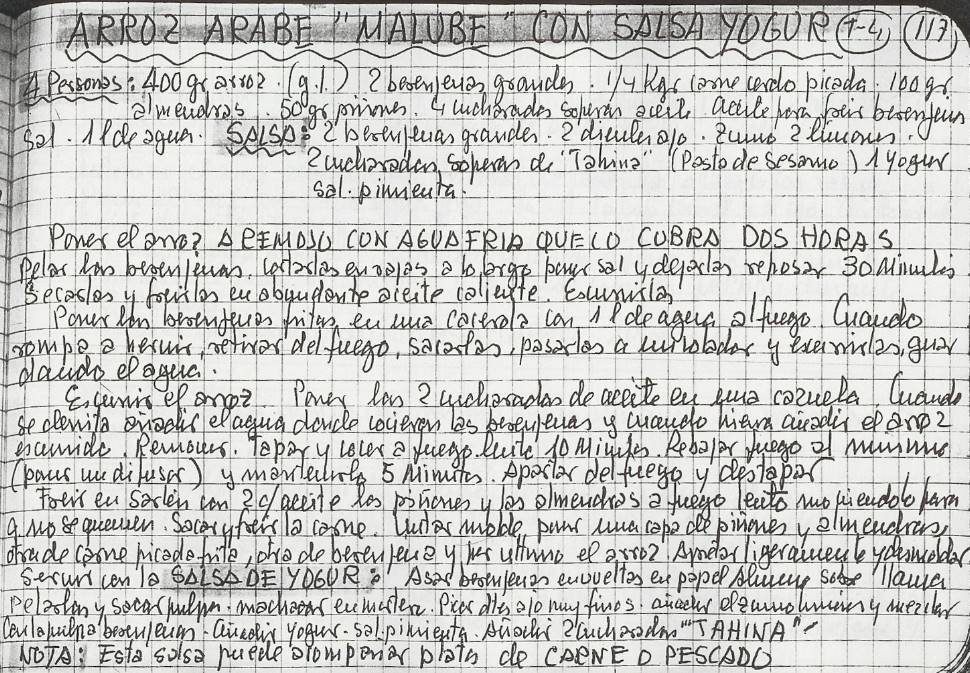 ARROZ ARABE "MALUBE" CON SALSA YOGUR T-4 117
4 Personas: 400 gr arroz. (g.l.) 2 berenjenas grandes. 1/4 Kgr carne cerdo picada. 100 gr
almendras. 50 gr piñones. 4 cucharadas soperas aceite. Aceite para freir berenjenas
Sal. 1 l de agua. SALSA: 2 berenjenas grandes. 2 dientes ajo. Zumo 2 limones.
2 cucharadas soperas de "Tahina" (Pasta de Sesamo) 1 yogur
sal. pimienta.
Poner el arroz A REMOJO CON AGUA FRIA QUE LO CUBRA DOS HORAS
Pelar las berenjenas, cortarlas en rajas a lo largo poner sal y dejarlas reposar 30 Minutos
Secarlas y freirlas en abundante aceite caliente. Escurrirlas
Poner las berenjenas fritas en una cacerola con 1 l de agua al fuego. Cuando
rompa a hervir, retirar del fuego, sacarlas, pasarlas a un colador y escurrirlas, guar
dando el agua.
Escurrir el arroz. Poner las 2 cucharadas de aceite en una cazuela. Cuando
se derrita añadir el agua donde cocieron las berenjenas y cuando hierva añadir el arroz
escurrido. Remover. Tapar y cocer a fuego lento 10 Minutos. Rebajar fuego al minimo
(poner un difusor) y mantenerlo 5 Minutos. Apartar del fuego y destapar
Freir en sarten con 2 c/ aceite los piñones y las almendras a fuego lento moviendolo para
q no se quemen. Sacar y freir la carne. Untar molde, poner una capa de piñones y almendras,
otra de carne picada frita, otra de berenjena y por ultimo el arroz. Apretar ligeramente y desmoldar
Servir con la SALSA DE YOGUR: Asar berenjenas envueltas en papel Alumin sobre llama
Pelarlas y sacar pulpa. machacar en mortero. Picar dtes ajo muy finos. añadir el zumo limones y mezclar
con la pulpa berenjenas. Añadir yogur. sal. pimienta. Añadir 2 cucharadas "TAHINA"
NOTA: Esta salsa puede acompañar platos de CARNE O PESCADO